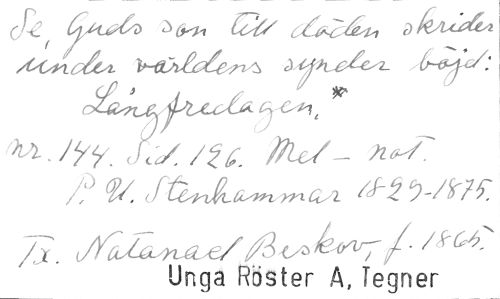 Se, Guds son till döden skrider
under världens synder böjd:
Långfredagen.*
nr. 144. Sid. 126. Mel – not.
P. U. Stenhammar 1829-1875.
Tx. Natanael Beskov, f. 1865.
Unga Röster A, Tegner